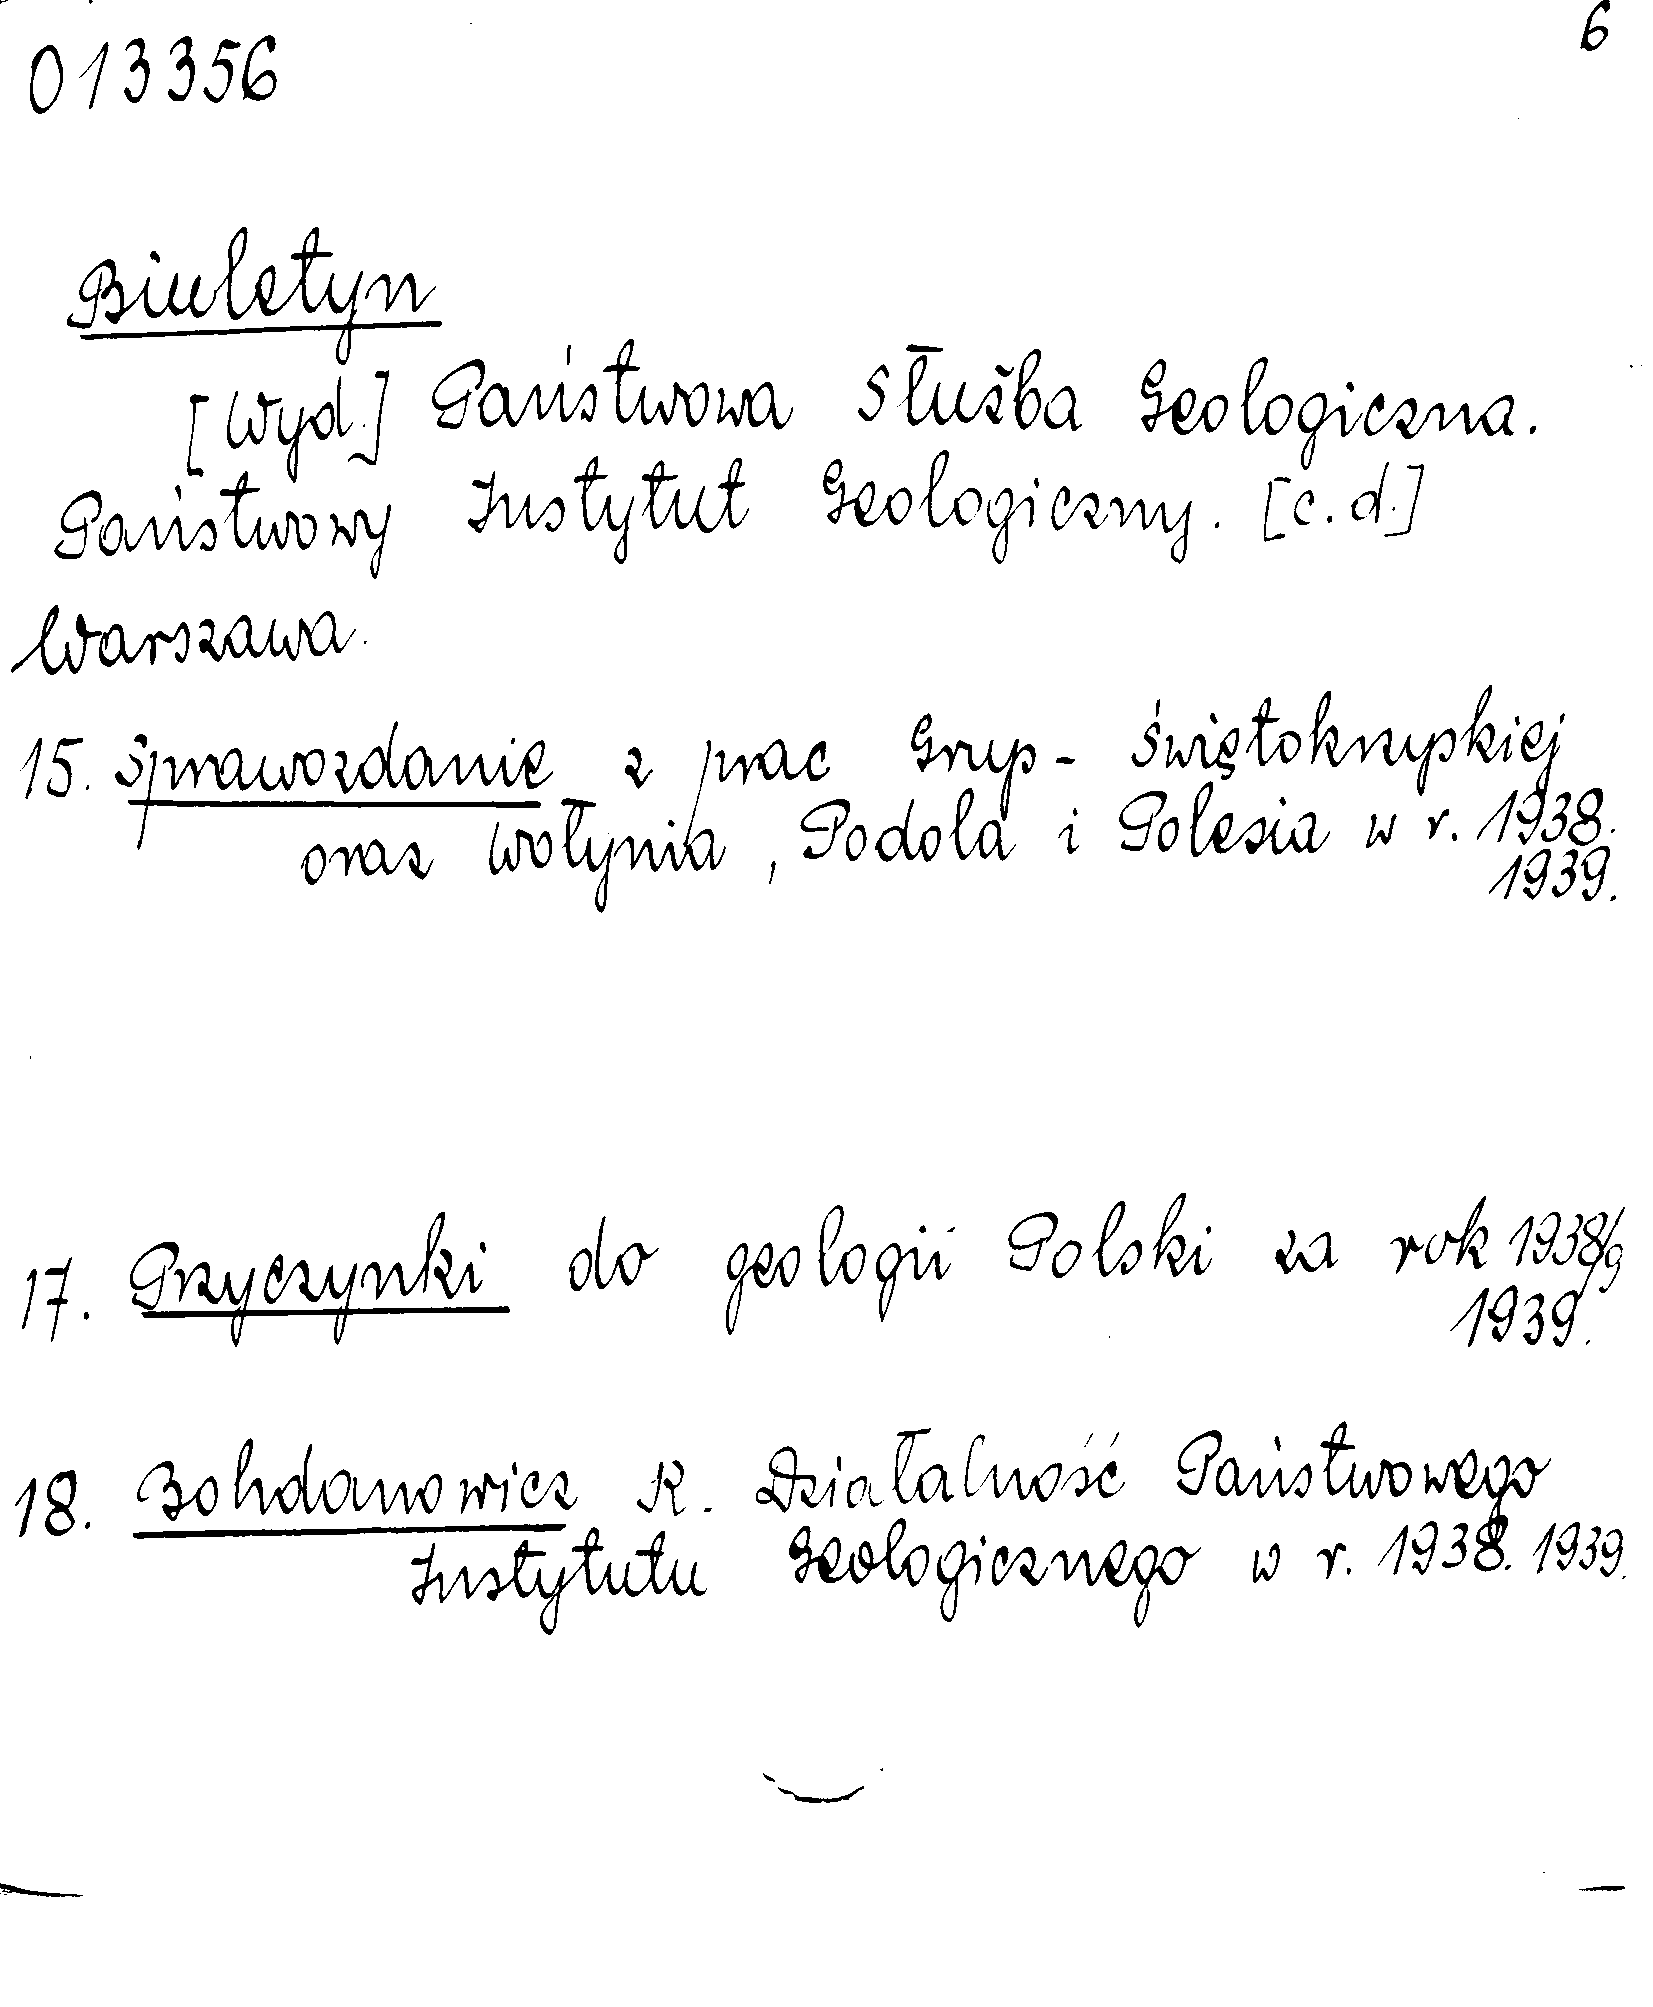 6
013356
Biuletyn
[Wyd.] Państwowa Służba Geologiczna.
Państwowy Instytut Geologiczny. [c.d.]
Warszawa.
15. Sprawozdanie z prac Grup- Świętokrzyskiej
oraz Wołynia, Podola i Polesia w r. 1938.
1939.
17. Przyczynki do geologii Polski za rok 1938/9
1939.
18. Bohdanowicz K. Działalność Państwowego
Instytutu Geologicznego w r. 1938. 1939.